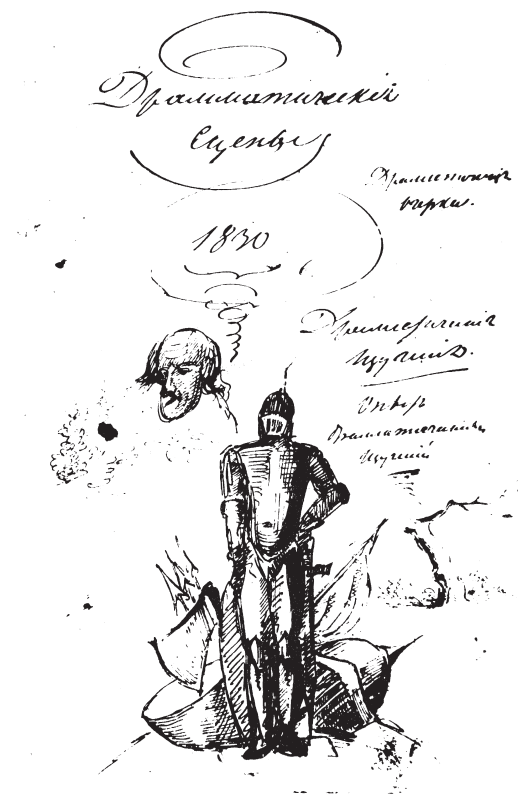 Драмматическія
сцены
1830
Драматическіе
очерки.
Драматическія
изученія.
Опытъ
драматическихъ
изученій